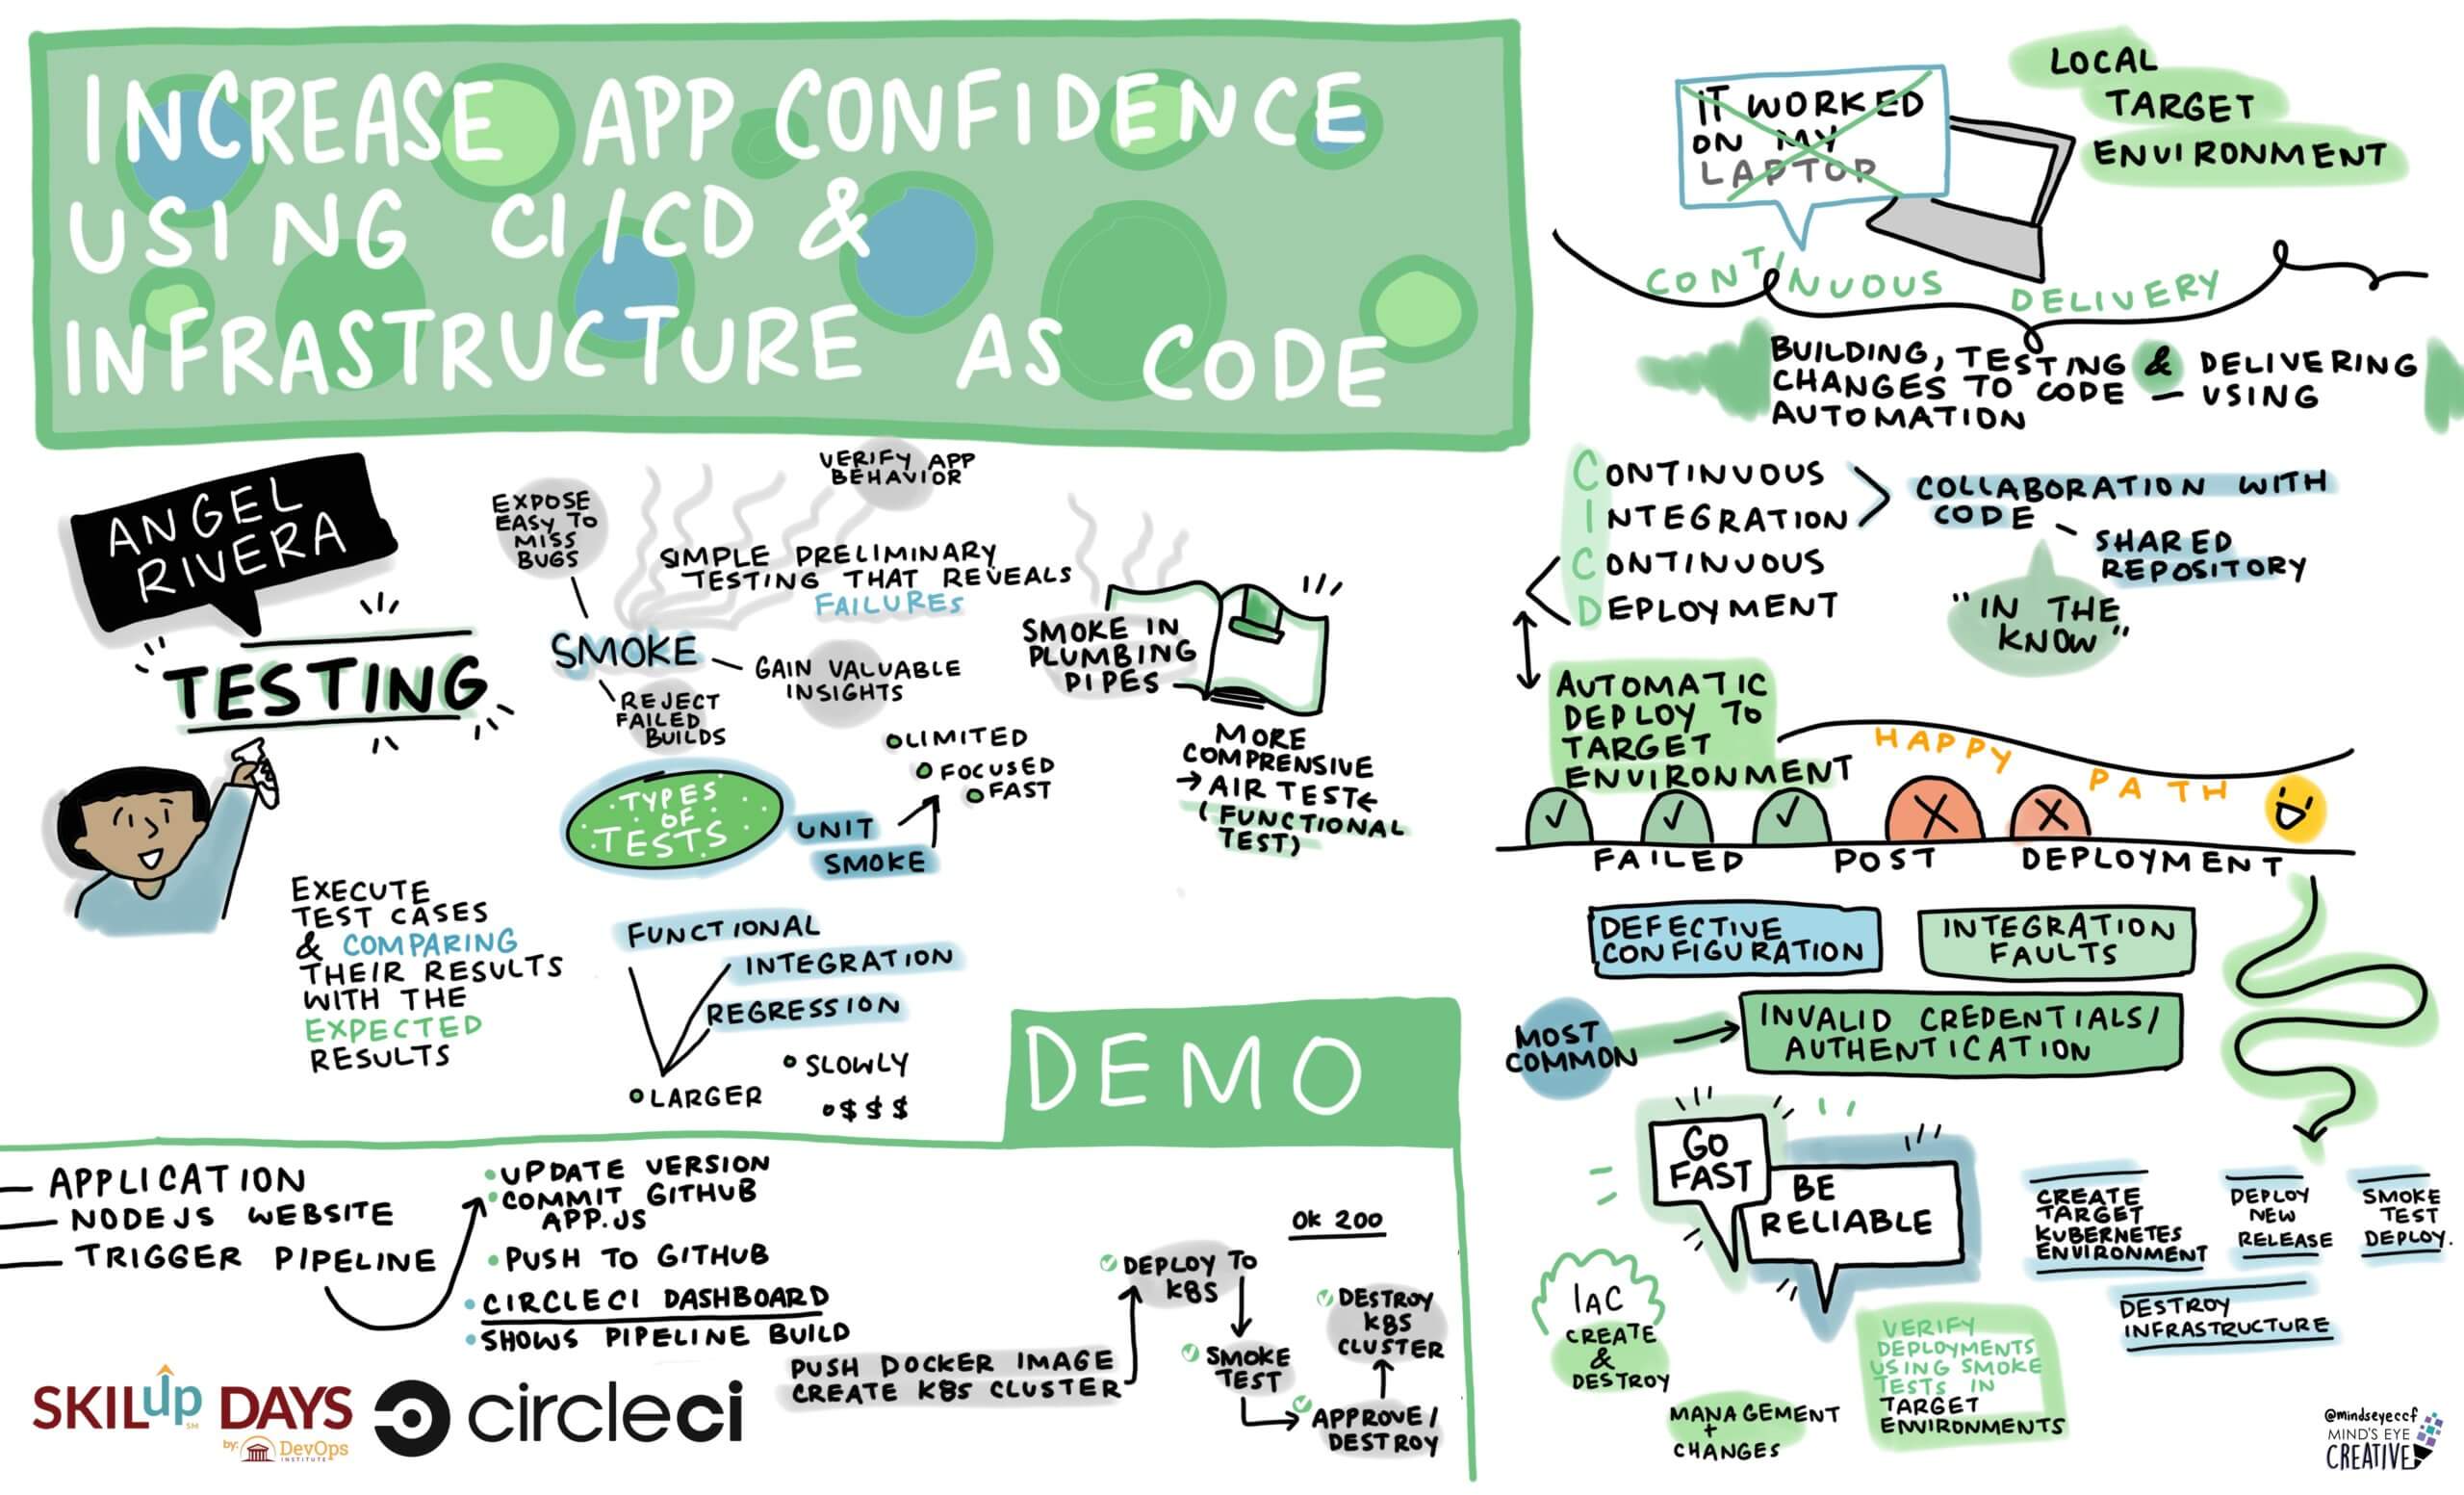 INCREASE APP CONFIDENCE
USING CI/CD &
INFRASTRUCTURE AS CODE
ANGEL
RIVERA
TESTING
EXECUTE
TEST CASES
& COMPARING
THEIR RESULTS
WITH THE
EXPECTED
RESULTS
EXPOSE
EASY TO
MISS
BUGS
VERIFY APP
BEHAVIOR
SIMPLE PRELIMINARY
TESTING THAT REVEALS
FAILURES
SMOKE
GAIN VALUABLE
INSIGHTS
REJECT
FAILED
BUILDS
SMOKE IN
PLUMBING
PIPES
MORE
COMPRENSIVE
→ AIR TEST ←
(FUNCTIONAL
TEST)
TYPES
OF
TESTS
UNIT
SMOKE
LIMITED
FOCUSED
FAST
FUNCTIONAL
INTEGRATION
REGRESSION
LARGER
SLOWLY
$$$
DEMO
APPLICATION
NODEJS WEBSITE
TRIGGER PIPELINE
UPDATE VERSION
COMMIT GITHUB
APP.JS
PUSH TO GITHUB
CIRCLECI DASHBOARD
SHOWS PIPELINE BUILD
PUSH DOCKER IMAGE
CREATE K8S CLUSTER
DEPLOY TO
K8S
SMOKE
TEST
APPROVE/
DESTROY
DESTROY
K8S
CLUSTER
OK 200
SKILup DAYS
SM
by: DevOps
INSTITUTE
circleci
IT WORKED
ON MY
LAPTOP
LOCAL
TARGET
ENVIRONMENT
CONTINUOUS DELIVERY
BUILDING, TESTING & DELIVERING
CHANGES TO CODE — USING
AUTOMATION
CONTINUOUS
INTEGRATION
CONTINUOUS
DEPLOYMENT
COLLABORATION WITH
CODE
SHARED
REPOSITORY
"IN THE
KNOW"
AUTOMATIC
DEPLOY TO
TARGET
ENVIRONMENT
HAPPY PATH
FAILED POST DEPLOYMENT
DEFECTIVE
CONFIGURATION
INTEGRATION
FAULTS
MOST
COMMON
INVALID CREDENTIALS/
AUTHENTICATION
GO
FAST
BE
RELIABLE
IAC
CREATE
&
DESTROY
MANAGEMENT
+
CHANGES
VERIFY
DEPLOYMENTS
USING SMOKE
TESTS IN
TARGET
ENVIRONMENTS
CREATE
TARGET
KUBERNETES
ENVIRONMENT
DEPLOY
NEW
RELEASE
SMOKE
TEST
DEPLOY.
DESTROY
INFRASTRUCTURE
@mindseyeccf
MIND'S EYE
CREATIVE